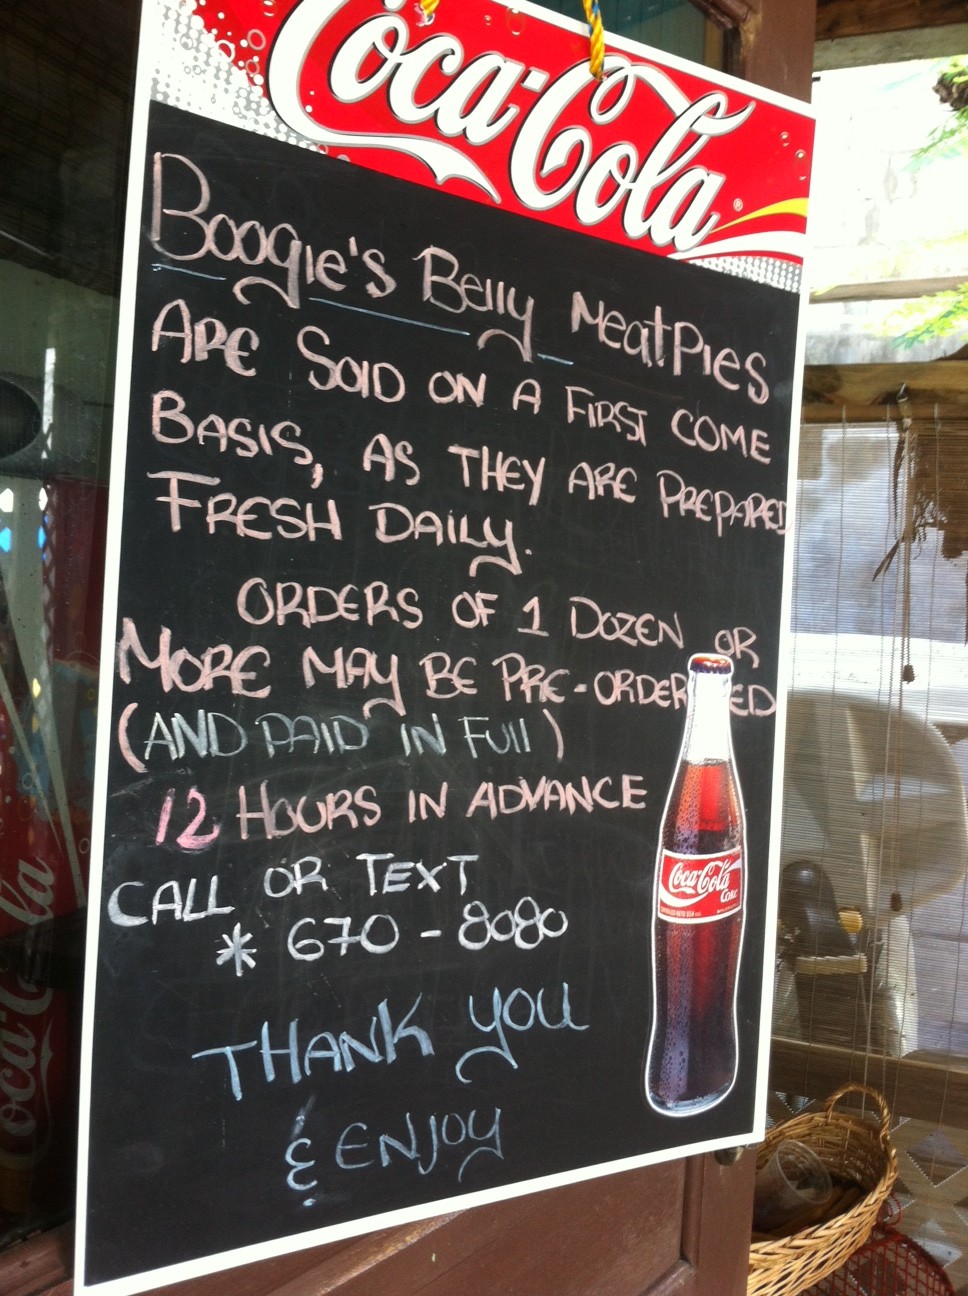 Coca-Cola
Boogie's Belly MeatPies
ARE Sold ON A FIRST COME
BASIS, AS THEY ARE PREPARED
FRESH DAILY.
ORDERS OF 1 DOZEN OR
MORE MAY BE PRE-ORDERED
(AND PAID IN Full)
12 HOURS IN ADVANCE
CALL OR TEXT
* 670-8080
THANK YOU
& ENJOY
Coca-Cola
Coke
Coca-Cola